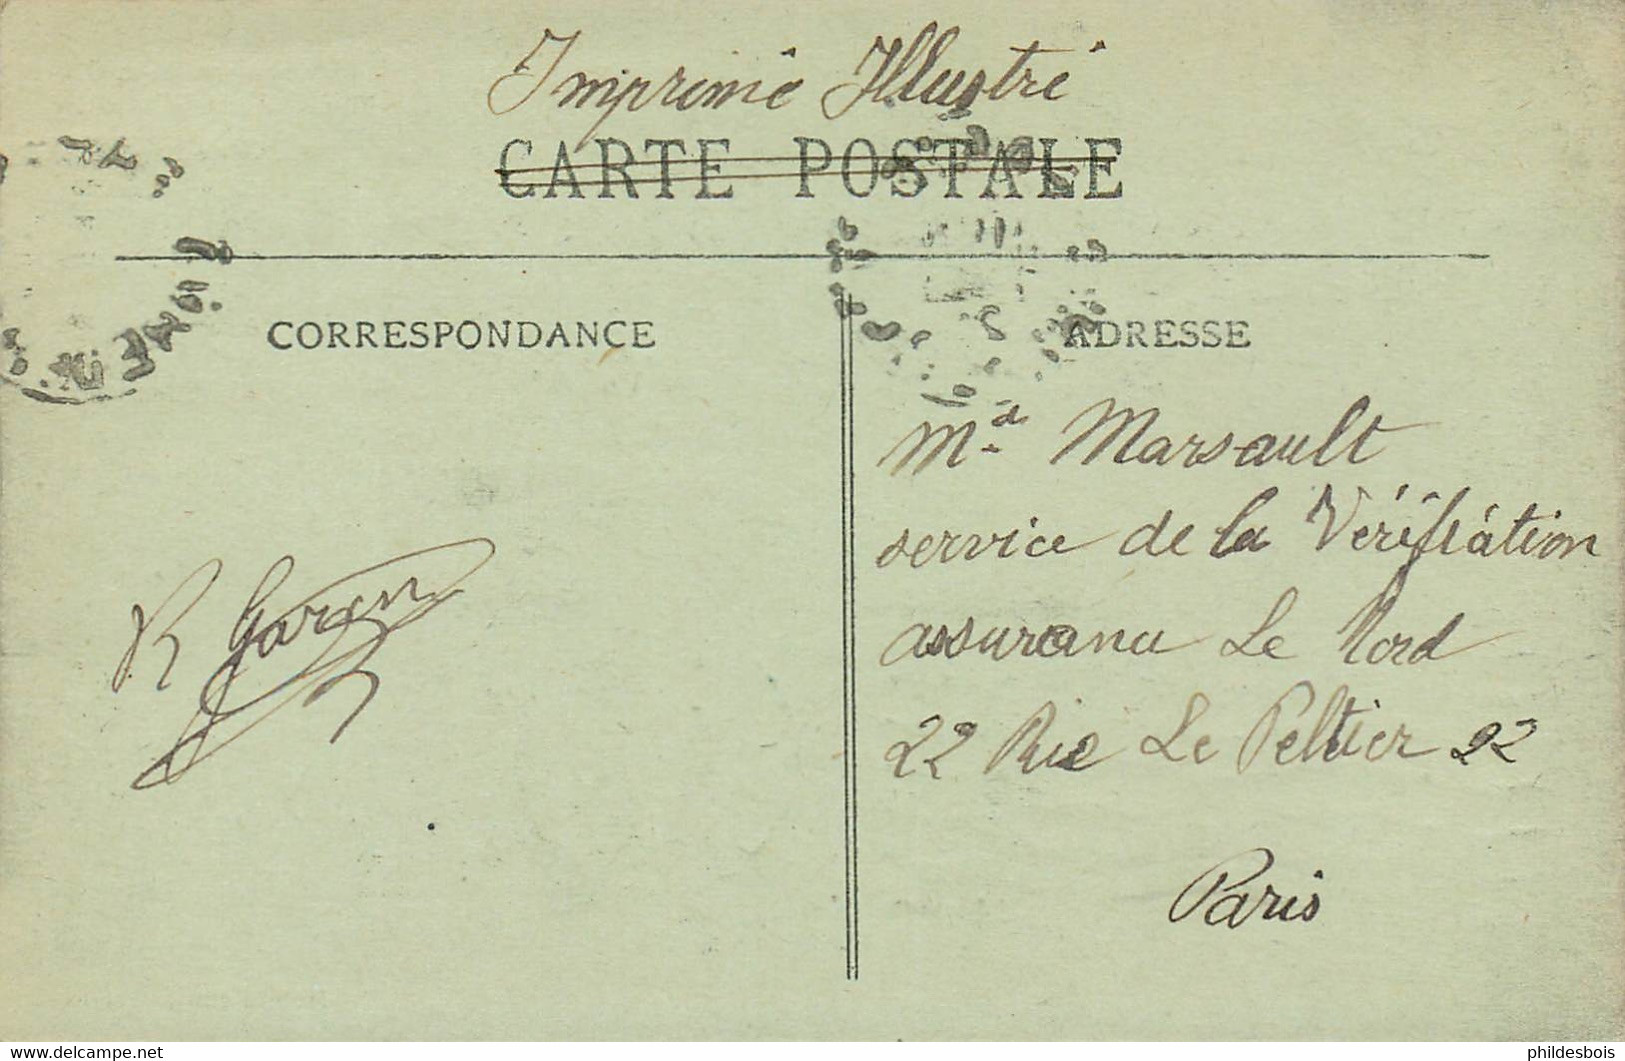 Imprimé Illustré
CARTE POSTALE
CORRESPONDANCE
ADRESSE
Md Marsault
service de la Vérifiation
assurance Le Nord
22 Rue Le Peltier 22
Paris
R Garen
phildesbois